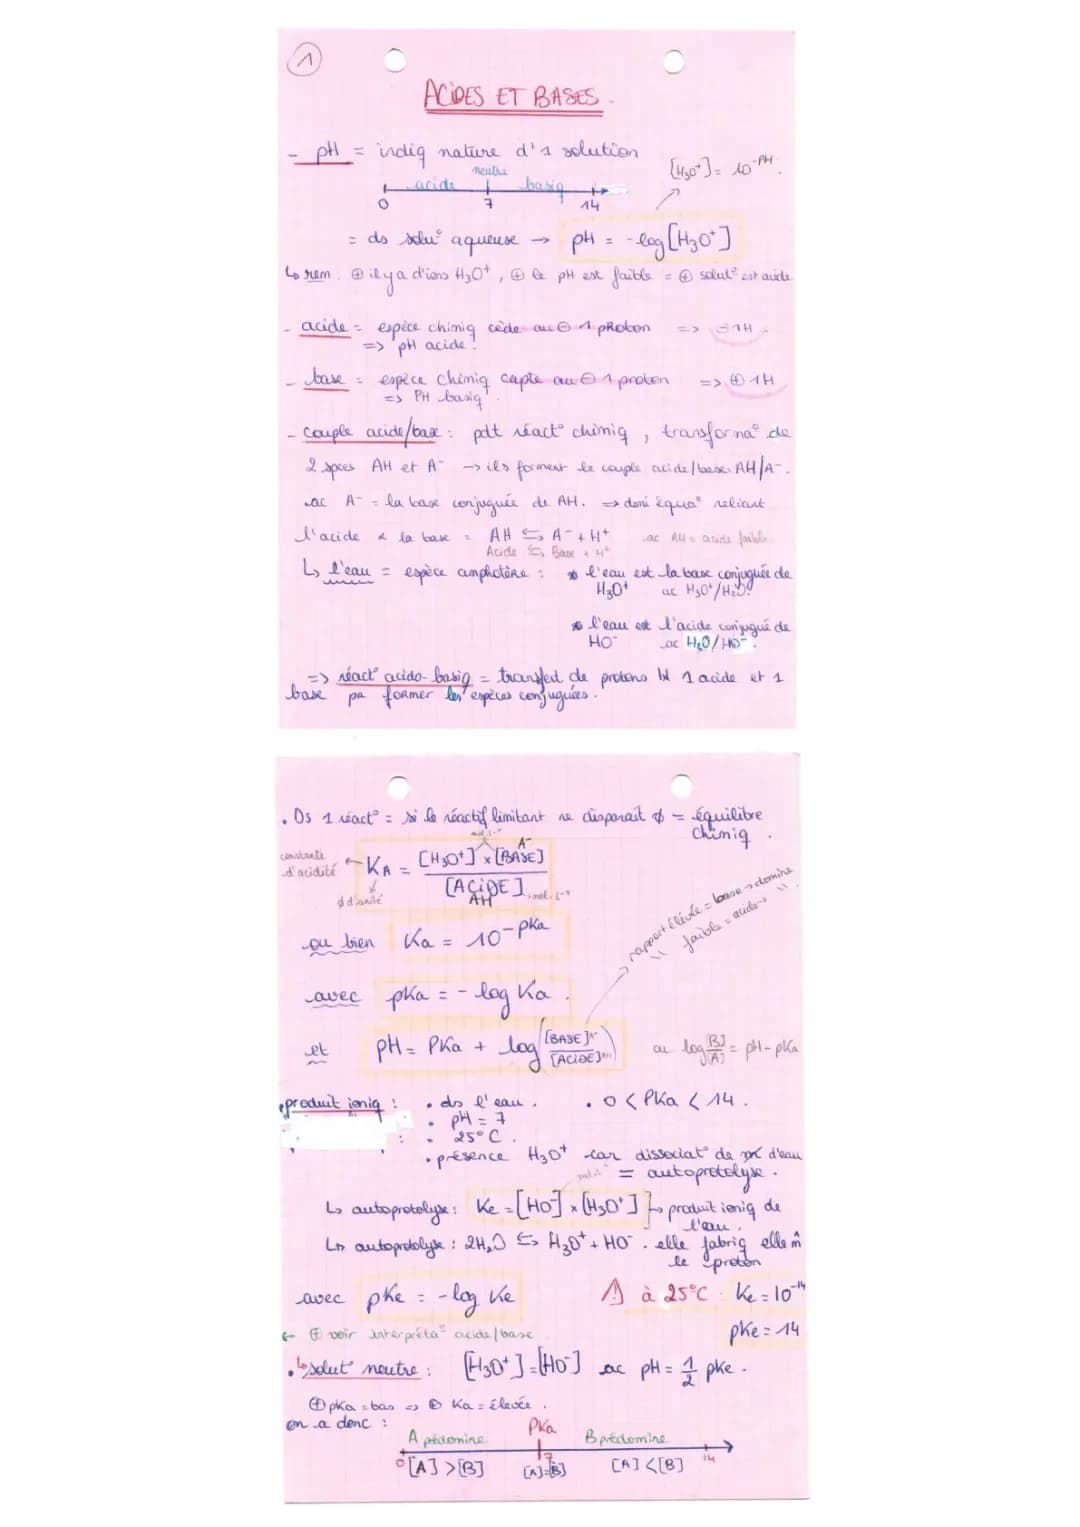 1
ACIDES ET BASES.
- pH = indiq nature d'1 solution
neutre
acide basiq
0 7 14
[H3O+] = 10^-PH.
= ds solu° aqueuse → pH = -log[H3O+]
↳ rem : ⊕ il y a d'ions H3O+, ⊕ le pH est faible = ⊕ solut° est acide
- acide = espèce chimiq cède au ⊖ 1 proton => ⊖ 1H.
=> pH acide.
- base = espèce chimiq capte au ⊖ 1 proton => ⊕ 1H
=> PH basiq
- couple acide/base : pdt réact° chimiq, transforma° de
2 spces AH et A- → ils forment le couple acide/base AH/A-.
ac A- = la base conjuguée de AH. => demi équa° reliant
l'acide & la base = AH ⇆ A- + H+ ac AH = acide faible
Acide ⇆ Base + H+
↳ l'eau = espèce amphotère : * l'eau est la base conjuguée de
H3O+ ac H3O+/H2O.
* l'eau est l'acide conjugué de
HO- ac H2O/HO-.
=> réact° acido-basiq = transfert de protons 1 acide et 1
base pr former les espèces conjuguées.
. Ds 1 réact° = si le réactif limitant ne disparait ∅ = équilibre
chimiq.
constante
d'acidité ← KA = [H3O+] x [BASE] / [ACIDE]
mol.L-1
A-
AH
mol.L-1
∅ d'unité
ou bien Ka = 10^-pKa
rapport élevée = base → domine
" faible = acide → "
avec pKa = - log Ka.
et pH = PKa + log([BASE]A- / [ACIDE]AH) ou log [B]/[A] = pH - pKa
• produit ioniq : • ds l'eau. • 0 < PKa < 14.
• pH = 7
: • 25°C.
• présence H3O+ car dissociat° de d'eau
= autoprotolyse.
↳ autoprotolyse : Ke = [HO-] x [H3O+] → produit ioniq de
l'eau.
↳ autoprotolyse : 2H2O ⇆ H3O+ + HO-. elle fabriq elle m̂
le proton
avec pKe = - log Ke ⚠ à 25°C : Ke = 10^-14
pKe = 14
← ⊕ voir interpréta° acide/base
• ↳ solut° neutre : [H3O+] = [HO-] ac pH = 1/2 pKe.
⊕ pKa = bas => ⊕ Ka = élevée.
on a donc :
A prédomine PKa B prédomine
0 7 14
[A] > [B] [A]=[B] [A] < [B]